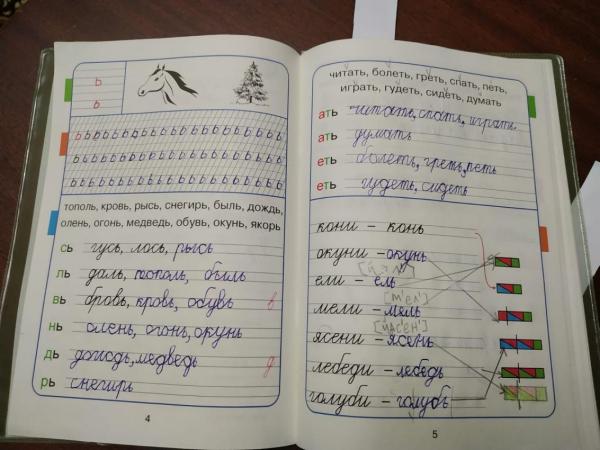 ь
ь
тополь, кровь, рысь, снегирь, быль, дождь,
олень, огонь, медведь, обувь, окунь, якорь
сь гусь, лось, рысь
ль даль, тополь, быль
вь бровь, кровь, обувь в
нь олень, огонь, окунь
дь дождь, медведь д
рь снегирь
4
читать, болеть, греть, спать, петь,
играть, гудеть, сидеть, думать
ать читать, спать, играть
ать думать
еть болеть, греть, петь
еть гудеть, сидеть
кони – конь
окуни – окунь
ели – ель
[м'ел']
мели – мель
ясени – ясень
лебеди – лебедь
голуби – голубь
5